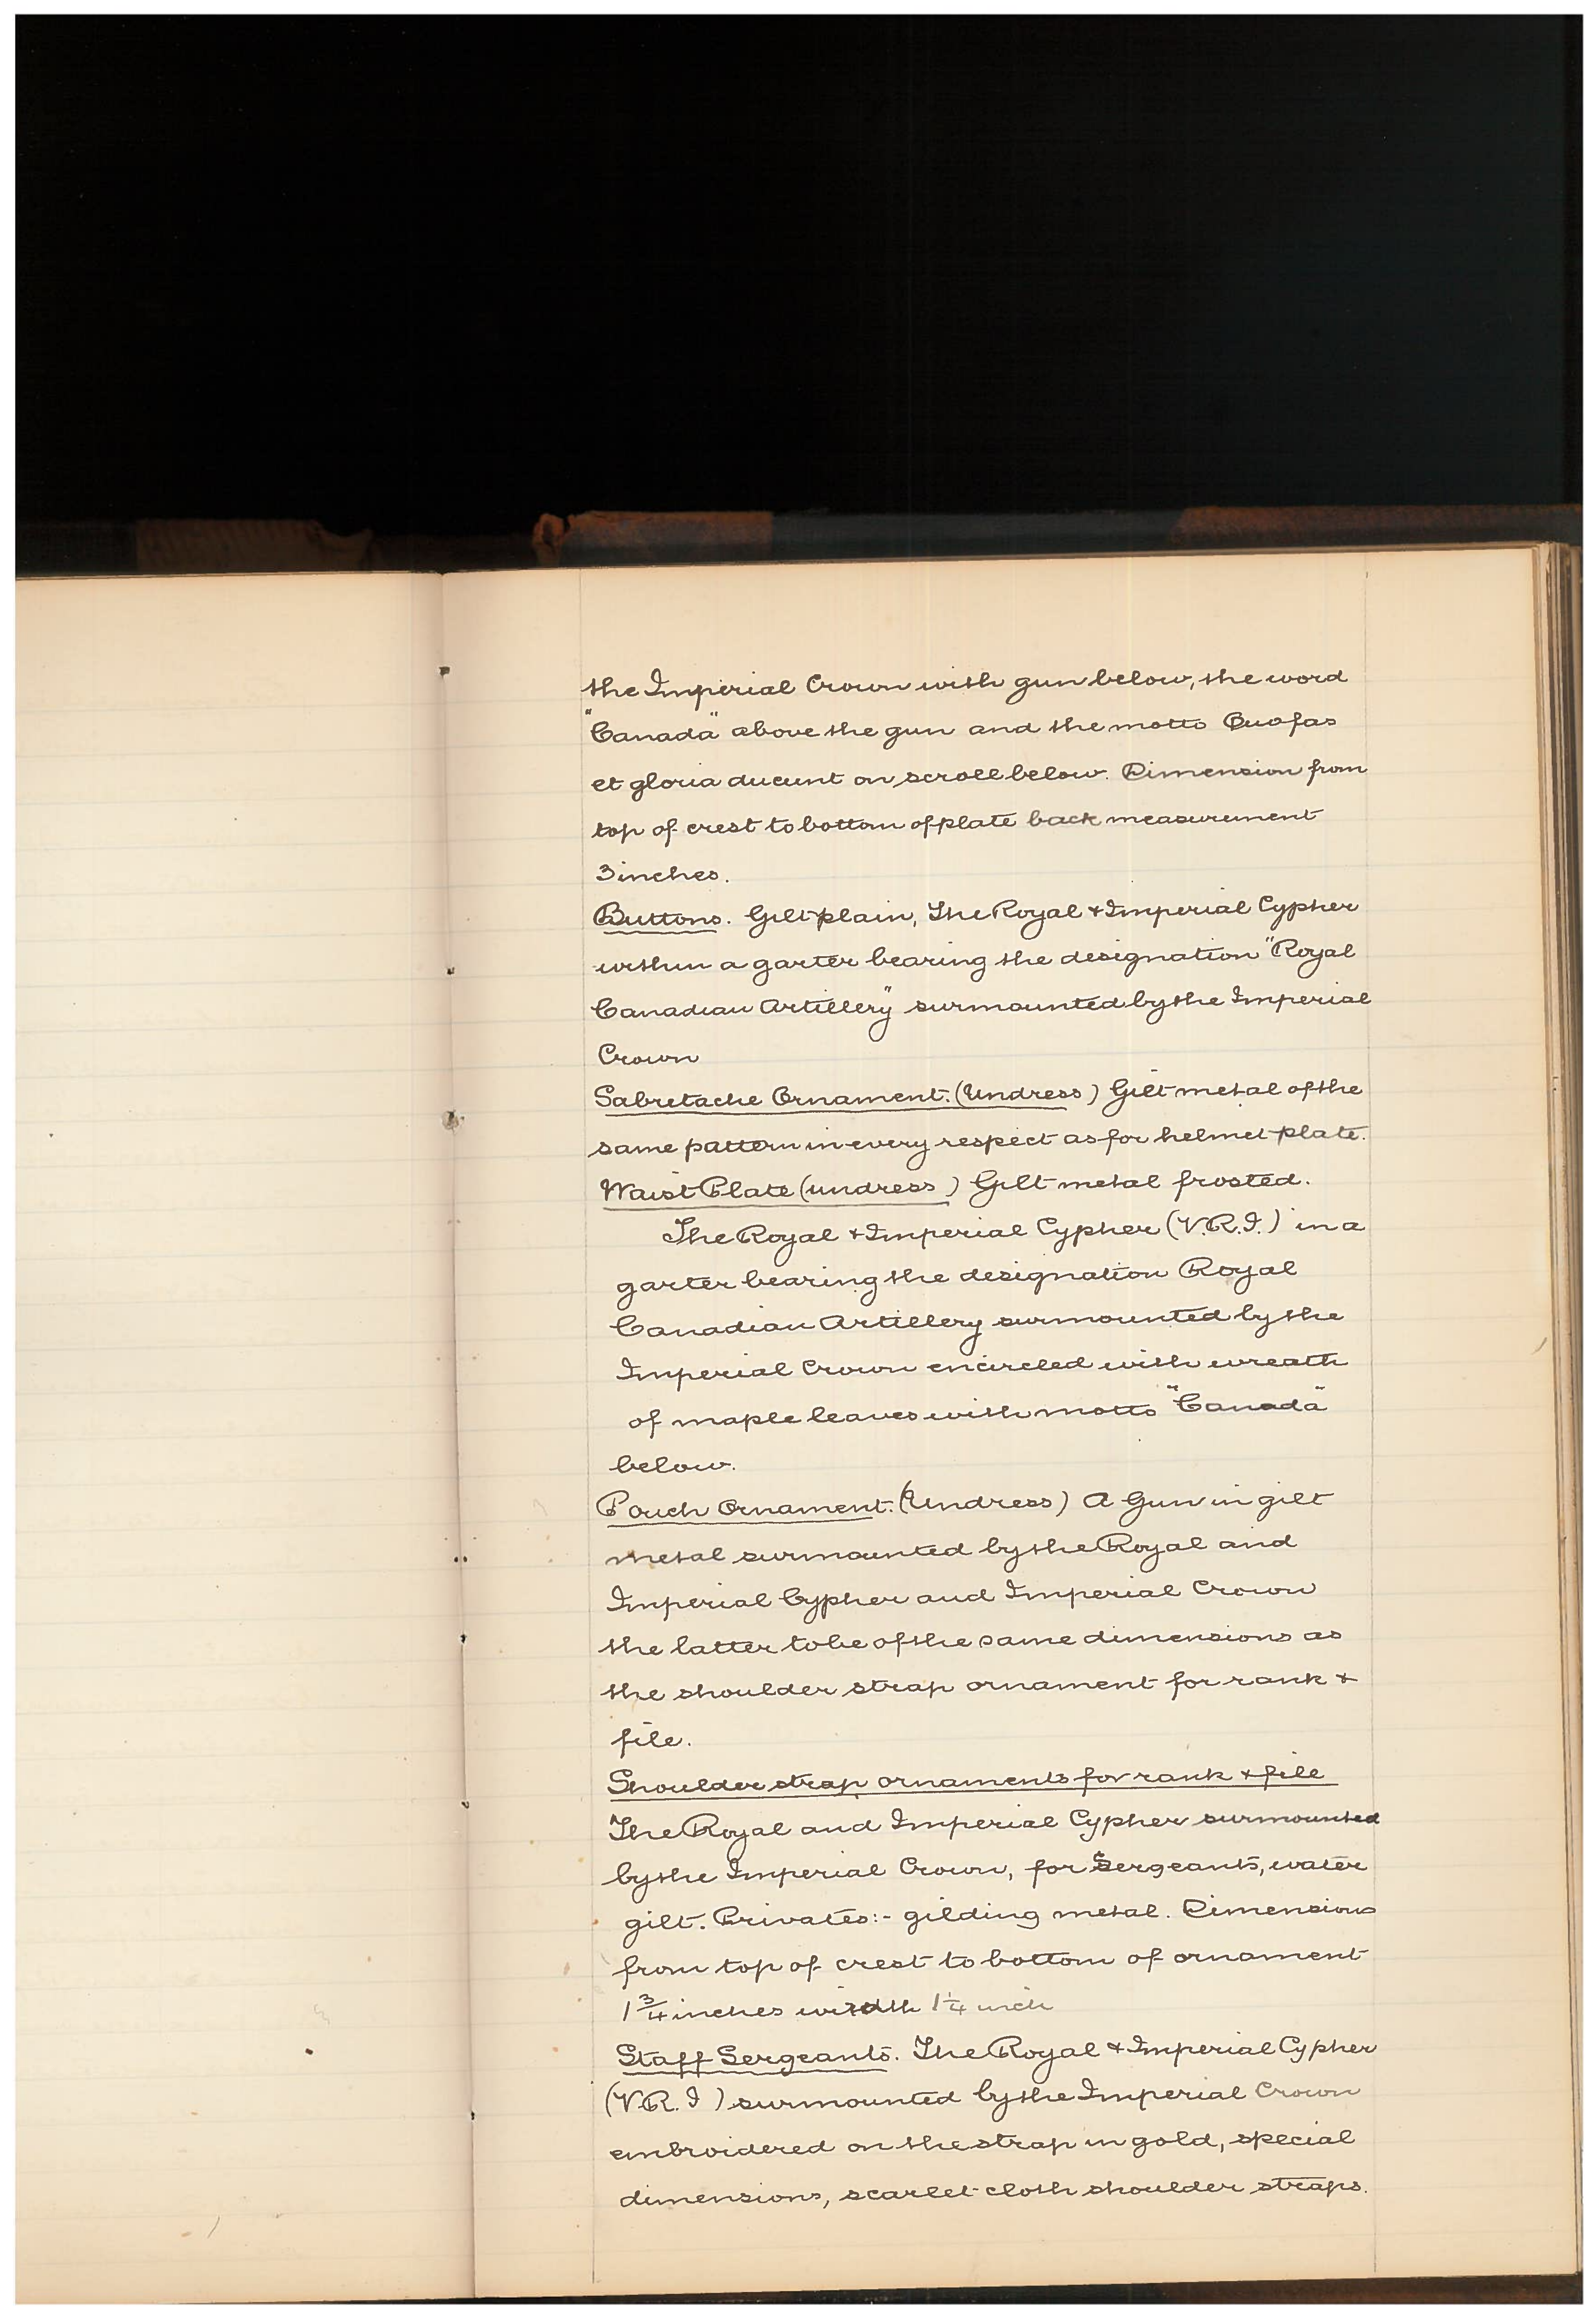 the Imperial Crown with gun below, the word
"Canada" above the gun and the motto Quo fas
et gloria ducunt on scroll below. Dimension from
top of crest to bottom of plate back measurement
3 inches.
Buttons. Gilt plain, The Royal & Imperial Cypher
within a garter bearing the designation "Royal
Canadian Artillery" surmounted by the Imperial
Crown
Sabretache Ornament. (Undress) Gilt metal of the
same pattern in every respect as for helmet plate.
Waist Plate (undress) Gilt metal frosted.
The Royal & Imperial Cypher (V.R.I.) in a
garter bearing the designation Royal
Canadian Artillery surmounted by the
Imperial Crown encircled with wreath
of maple leaves with motto "Canada"
below.
Pouch Ornament. (Undress) A Gun in gilt
metal surmounted by the Royal and
Imperial Cypher and Imperial Crown
the latter to be of the same dimensions as
the shoulder strap ornament for rank &
file.
Shoulder strap ornaments for rank & file
The Royal and Imperial Cypher surmounted
by the Imperial Crown, for Sergeants, water
gilt. Privates:- gilding metal. Dimensions
from top of crest to bottom of ornament
1 3/4 inches width 1 1/4 inch
Staff Sergeants. The Royal & Imperial Cypher
(V.R.I) surmounted by the Imperial Crown
embroidered on the strap in gold, special
dimensions, scarlet cloth shoulder straps.